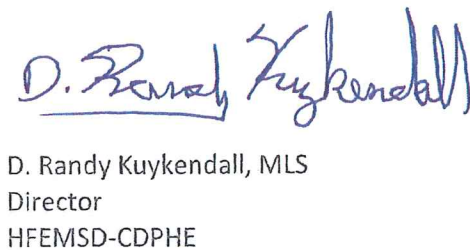 D. Randy Kuykendall
D. Randy Kuykendall, MLS
Director
HFEMSD-CDPHE